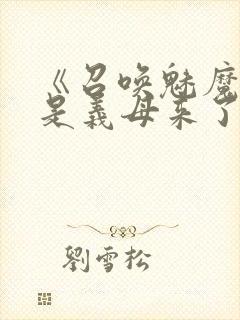 《召唤魅魔
是義母来了
劉雪松